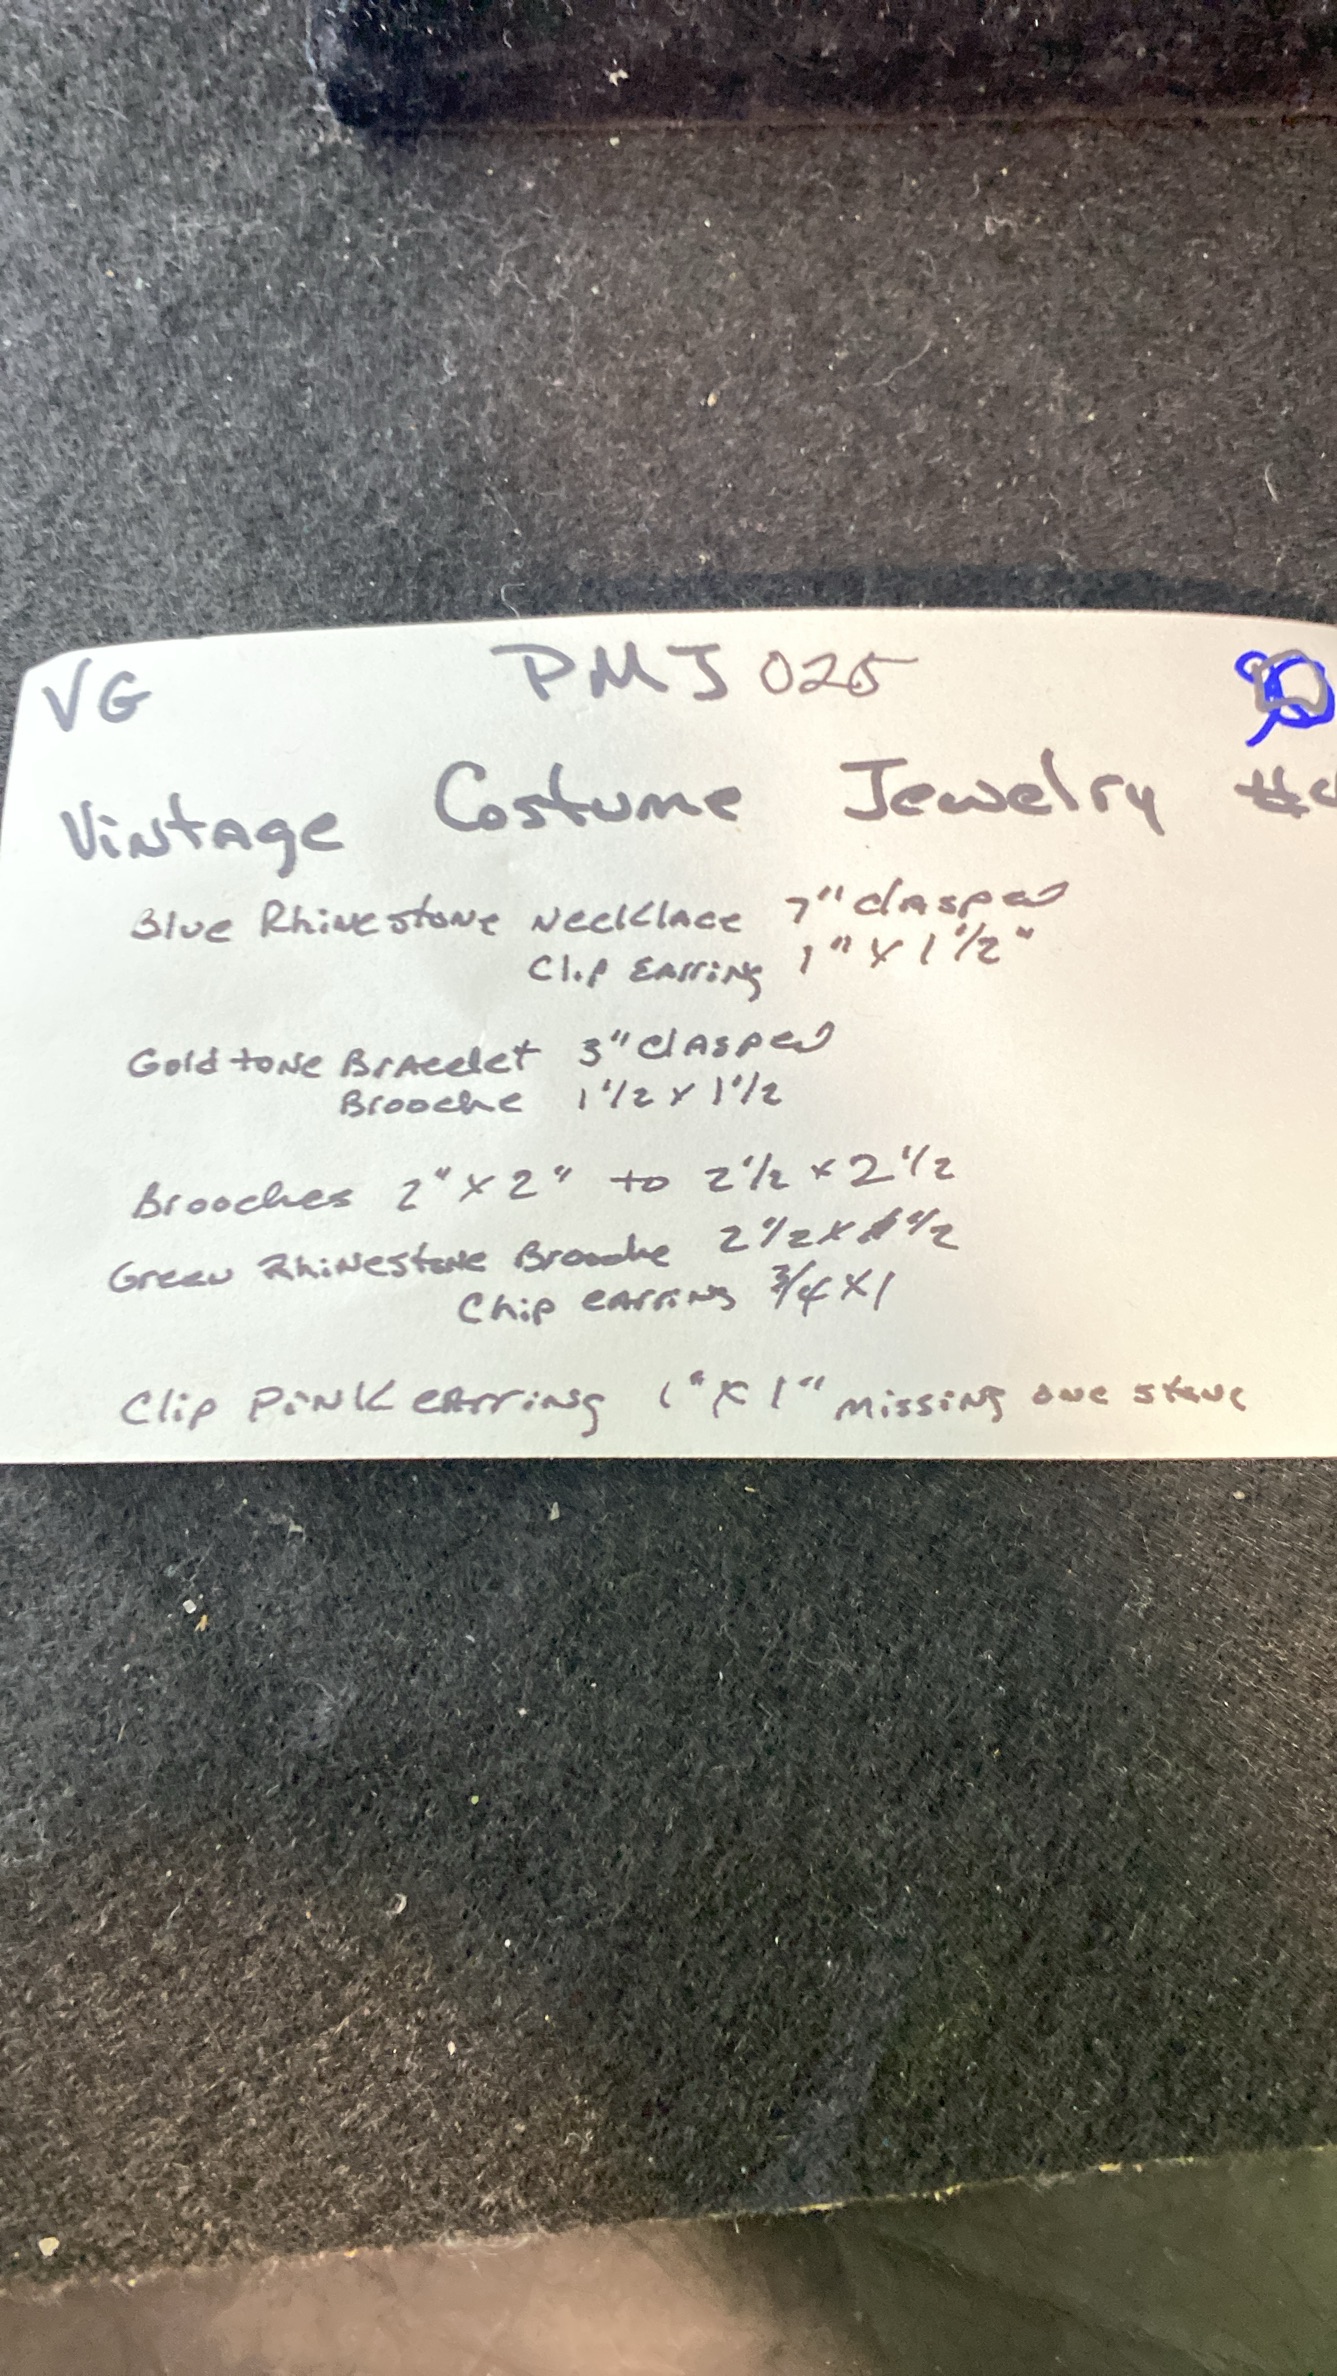 VG PMJ 025
Vintage Costume Jewelry
Blue Rhinestone Necklace 7" clasped
Clip Earring 1" x 1 1/2"
Gold tone Bracelet 3" clasped
Brooche 1 1/2 x 1 1/2
Brooches 2" x 2" to 2 1/2 x 2 1/2
Green Rhinestone Brooche 2 1/2 x 1/2
Chip earring 3/4 x 1
Clip Pink earring 1" x 1" missing one stone